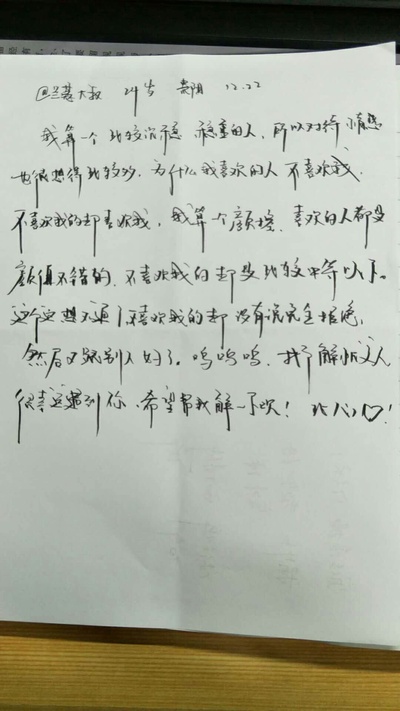 @兰蔻大叔 24岁 贵阳 12.22
我算一个比较沉稳 稳重的人,所以对待情感
也很想得比较多,为什么我喜欢的人不喜欢我,
不喜欢我的却喜欢我,我算一个颜控,喜欢的人都是
颜值不错的,不喜欢我的却是比较中等以下。
这个还想不通,不喜欢我的却没有说完全拒绝,
然后又跟别人好了。呜呜呜,找了解忧文人
很幸运遇到你、希望帮我解一下哎! 比心♡!